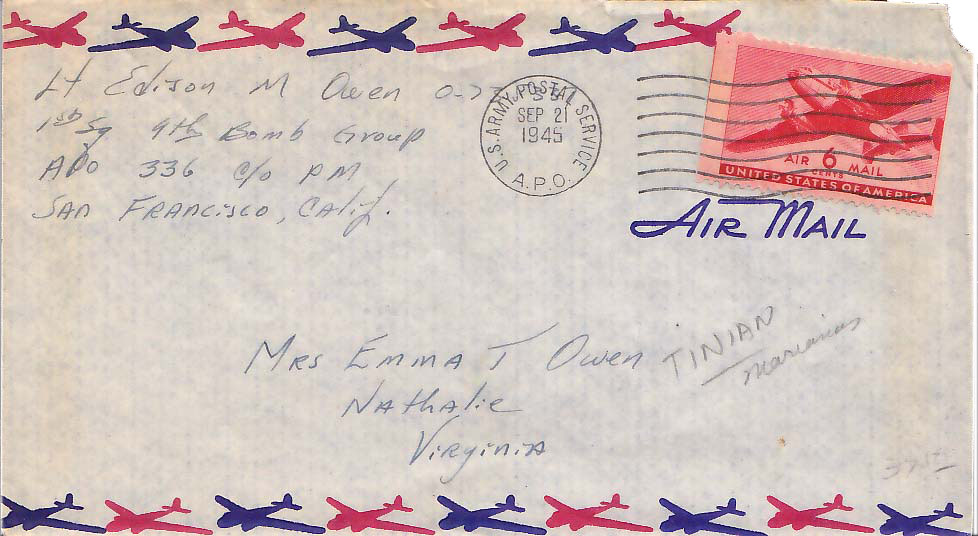 Lt Edison M Owen
1st Sq 9th Bomb Group
APO 336 c/o PM
San Francisco, Calif.
U.S. ARMY POSTAL SERVICE
SEP 21
1945
A.P.O.
AIR 6 MAIL
CENTS
UNITED STATES OF AMERICA
AIR MAIL
Mrs Emma T Owen
TINIAN
Marianas
Nathalie
Virginia